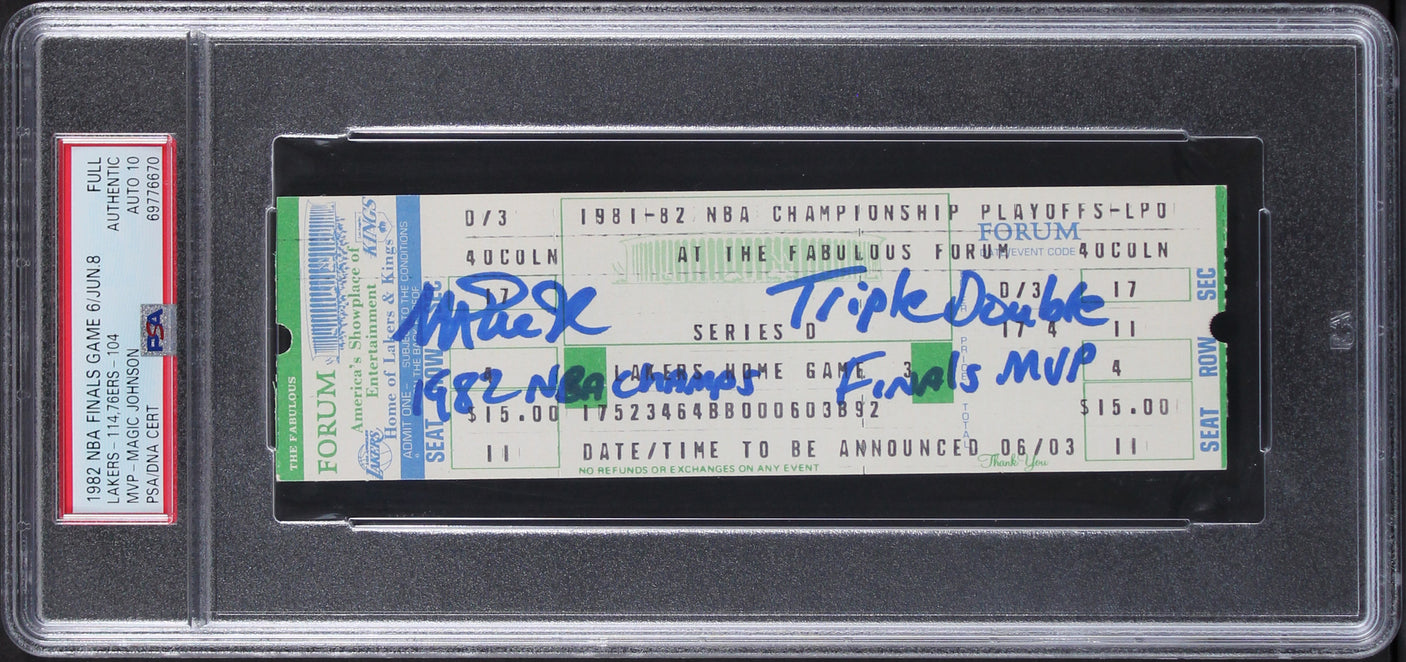 1982 NBA FINALS GAME 6/JUN.8 FULL
LAKERS-114,76ERS-104 AUTHENTIC
MVP-MAGIC JOHNSON AUTO 10
PSA/DNA CERT 69776670
PSA
THE FABULOUS
FORUM
America's Showplace of
Entertainment
Home of Lakers & Kings
KINGS
LAKERS
ADMIT ONE - SUBJECT TO THE CONDITIONS
SEAT ROW SEC
D/3 1981-82 NBA CHAMPIONSHIP PLAYOFFS-LPO
FORUM
40COLN AT THE FABULOUS FORUM 40COLN
EVENT CODE
17 D/3 17
Magic Triple Double
SERIES D 17 4 11
4 LAKERS HOME GAME 3 4
1982 NBA Champs Finals MVP
$15.00 17523464BB000603B92 $15.00
11 DATE/TIME TO BE ANNOUNCED 06/03 11
NO REFUNDS OR EXCHANGES ON ANY EVENT
Thank You
PRICE
TOTAL
SEAT ROW SEC